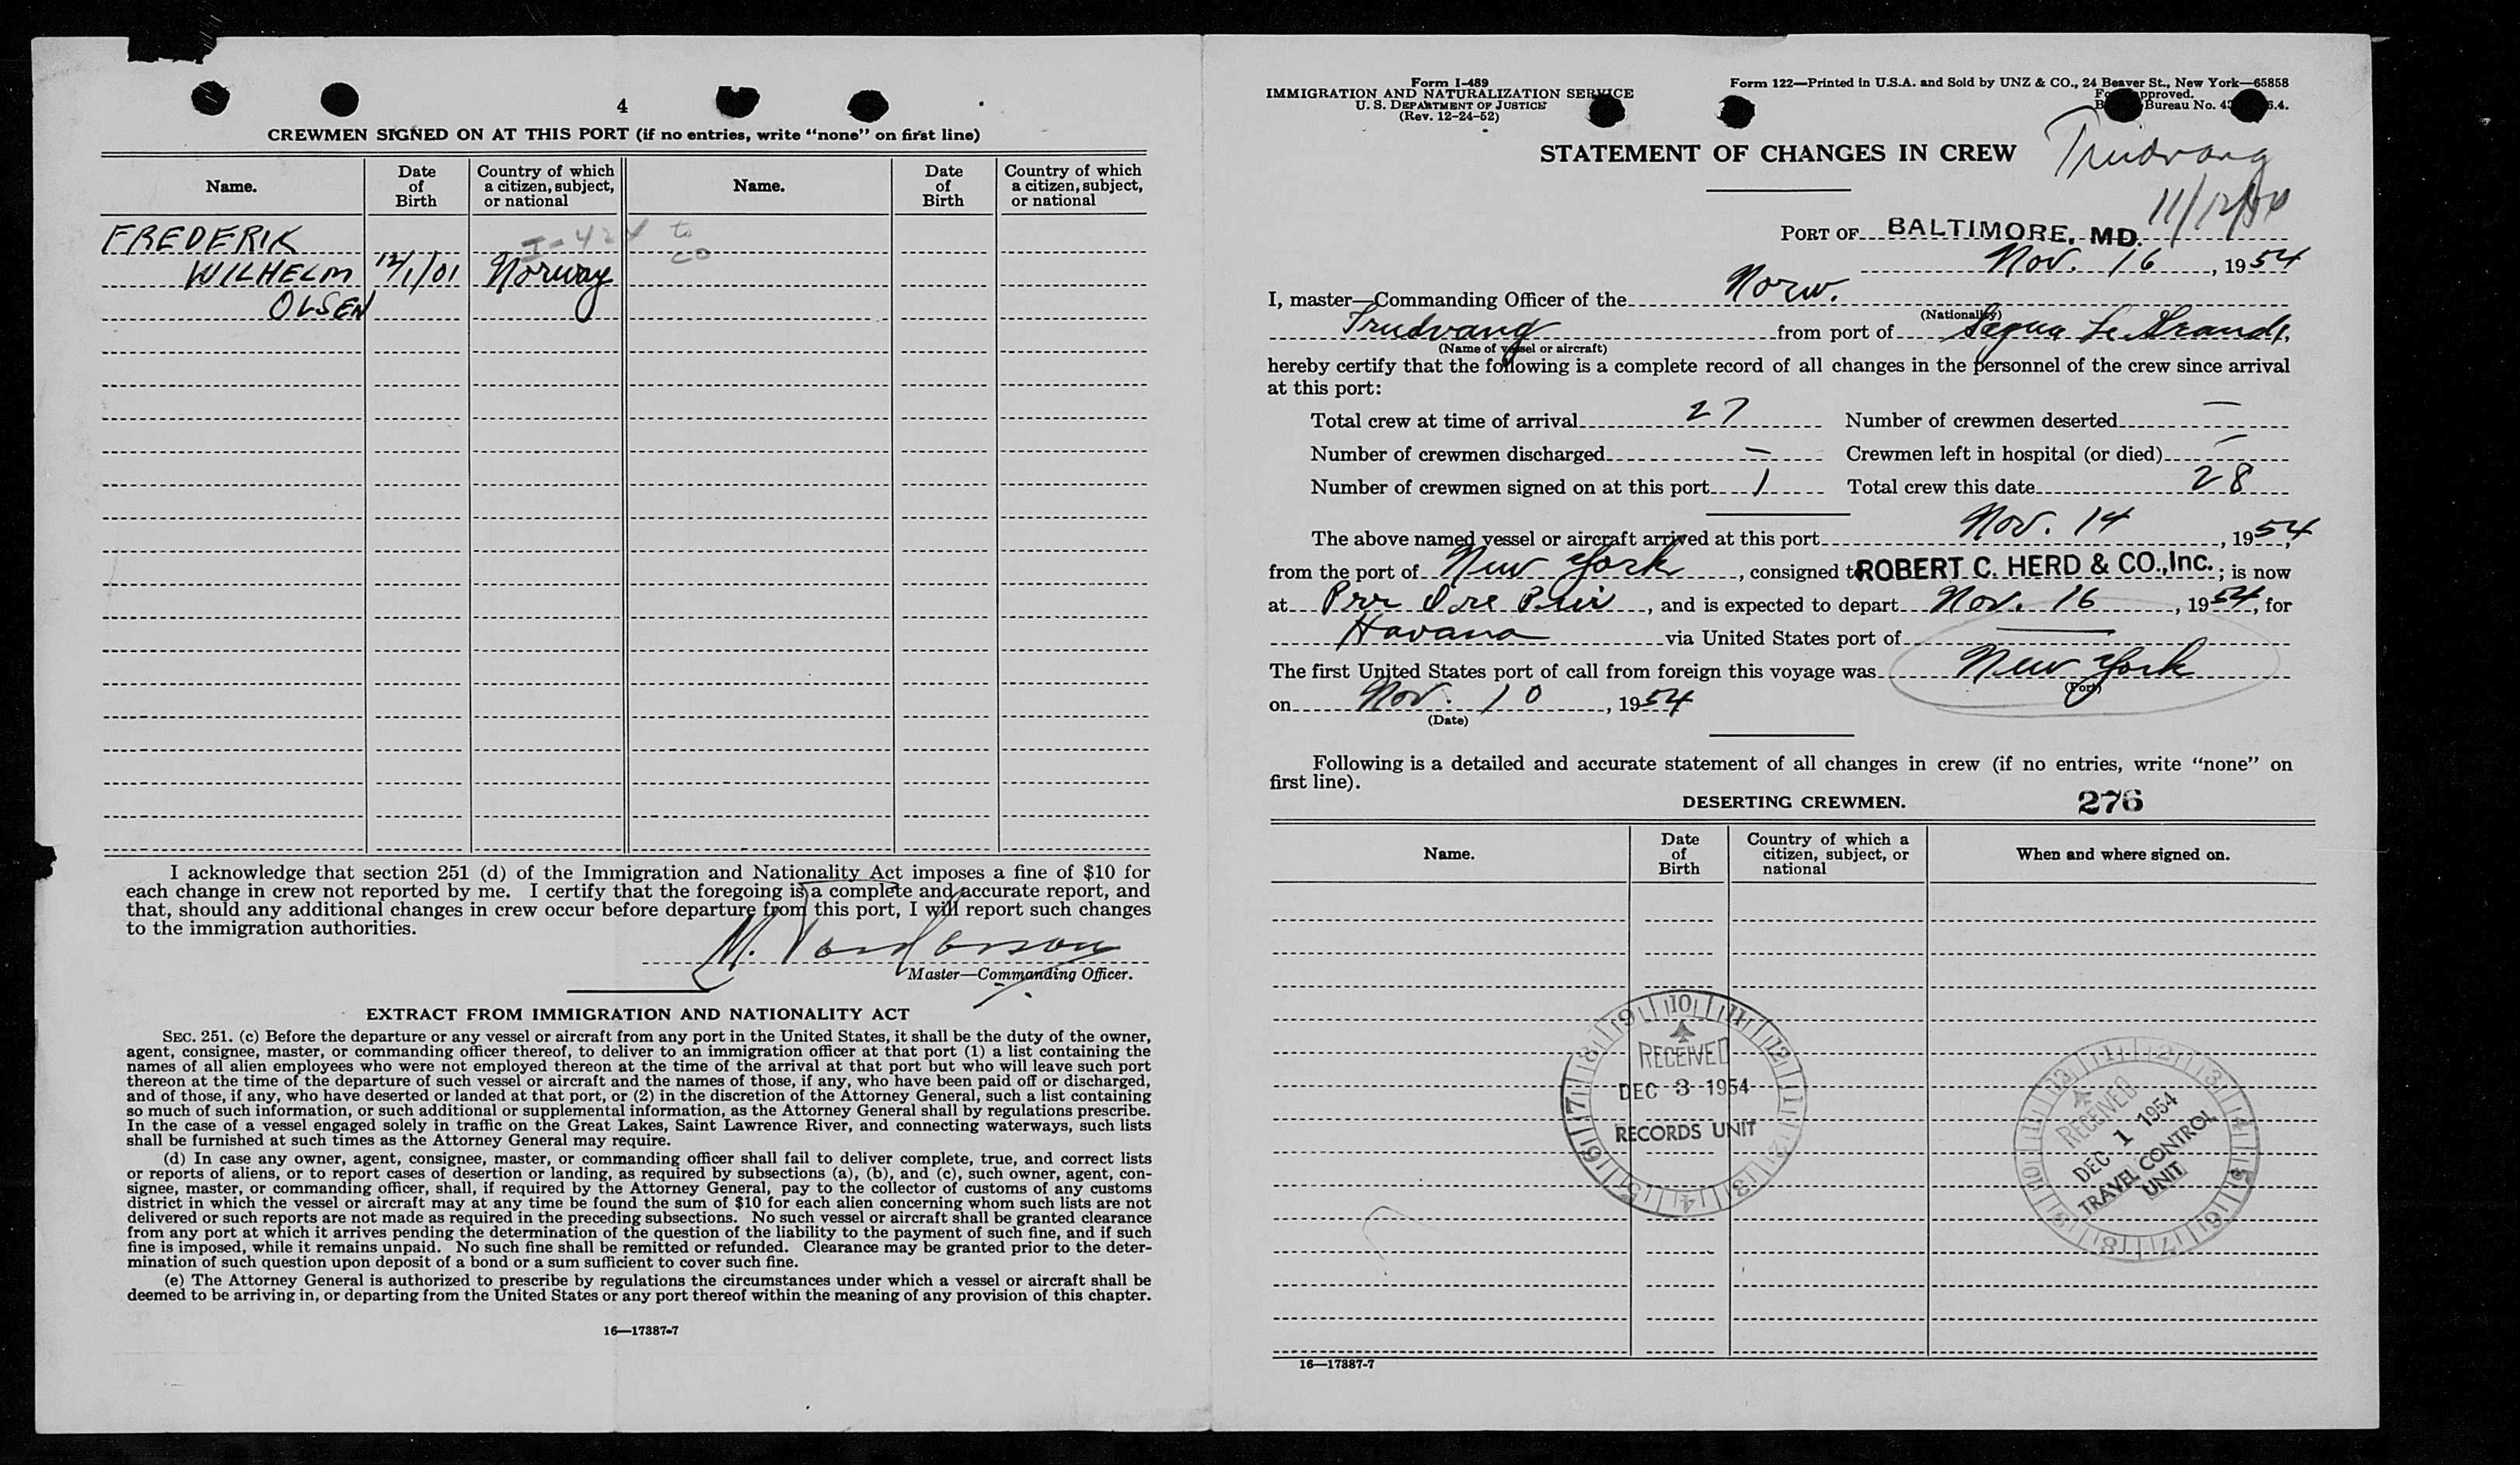 4
CREWMEN SIGNED ON AT THIS PORT (if no entries, write “none” on first line)
Name.
Date
of
Birth
Country of which
a citizen, subject,
or national
Name.
Date
of
Birth
Country of which
a citizen, subject,
or national
FREDERIK
I-424 to
CO
WILHELM 12/1/01 Norway
OLSEN
I acknowledge that section 251 (d) of the Immigration and Nationality Act imposes a fine of $10 for
each change in crew not reported by me. I certify that the foregoing is a complete and accurate report, and
that, should any additional changes in crew occur before departure from this port, I will report such changes
to the immigration authorities.
M.
Master—Commanding Officer.
EXTRACT FROM IMMIGRATION AND NATIONALITY ACT
SEC. 251. (c) Before the departure or any vessel or aircraft from any port in the United States, it shall be the duty of the owner,
agent, consignee, master, or commanding officer thereof, to deliver to an immigration officer at that port (1) a list containing the
names of all alien employees who were not employed thereon at the time of the arrival at that port but who will leave such port
thereon at the time of the departure of such vessel or aircraft and the names of those, if any, who have been paid off or discharged,
and of those, if any, who have deserted or landed at that port, or (2) in the discretion of the Attorney General, such a list containing
so much of such information, or such additional or supplemental information, as the Attorney General shall by regulations prescribe.
In the case of a vessel engaged solely in traffic on the Great Lakes, Saint Lawrence River, and connecting waterways, such lists
shall be furnished at such times as the Attorney General may require.
(d) In case any owner, agent, consignee, master, or commanding officer shall fail to deliver complete, true, and correct lists
or reports of aliens, or to report cases of desertion or landing, as required by subsections (a), (b), and (c), such owner, agent, con-
signee, master, or commanding officer, shall, if required by the Attorney General, pay to the collector of customs of any customs
district in which the vessel or aircraft may at any time be found the sum of $10 for each alien concerning whom such lists are not
delivered or such reports are not made as required in the preceding subsections. No such vessel or aircraft shall be granted clearance
from any port at which it arrives pending the determination of the question of the liability to the payment of such fine, and if such
fine is imposed, while it remains unpaid. No such fine shall be remitted or refunded. Clearance may be granted prior to the deter-
mination of such question upon deposit of a bond or a sum sufficient to cover such fine.
(e) The Attorney General is authorized to prescribe by regulations the circumstances under which a vessel or aircraft shall be
deemed to be arriving in, or departing from the United States or any port thereof within the meaning of any provision of this chapter.
16—17387-7
Form I-489
IMMIGRATION AND NATURALIZATION SERVICE
U. S. DEPARTMENT OF JUSTICE
(Rev. 12-24-52)
Form 122—Printed in U.S.A. and Sold by UNZ & CO., 24 Beaver St., New York—65858
approved.
Bureau No.
STATEMENT OF CHANGES IN CREW
Trudvang
11/12/54
PORT OF BALTIMORE, MD.
Nov. 16, 1954
I, master—Commanding Officer of the Norw.
(Nationality)
Trudvang from port of Sagua Le Grande,
(Name of vessel or aircraft)
hereby certify that the following is a complete record of all changes in the personnel of the crew since arrival
at this port:
Total crew at time of arrival 27 Number of crewmen deserted —
Number of crewmen discharged — Crewmen left in hospital (or died) —
Number of crewmen signed on at this port 1 Total crew this date 28
The above named vessel or aircraft arrived at this port Nov. 14, 1954
from the port of New York, consigned to ROBERT C. HERD & CO., Inc.; is now
at Prr Ore Peir, and is expected to depart Nov. 16, 1954, for
Havana via United States port of —
The first United States port of call from foreign this voyage was New York
(Port)
on Nov. 10, 1954
(Date)
Following is a detailed and accurate statement of all changes in crew (if no entries, write “none” on
first line).
DESERTING CREWMEN. 276
Name.
Date
of
Birth
Country of which a
citizen, subject, or
national
When and where signed on.
9 10 11 12 1 2 3 4 5 6 7 8
RECEIVED
DEC 3 1954
RECORDS UNIT
12 1 2 3 4 5 6 7 8 9 10 11
RECEIVED
DEC 1 1954
TRAVEL CONTROL
UNIT
16—17387-7